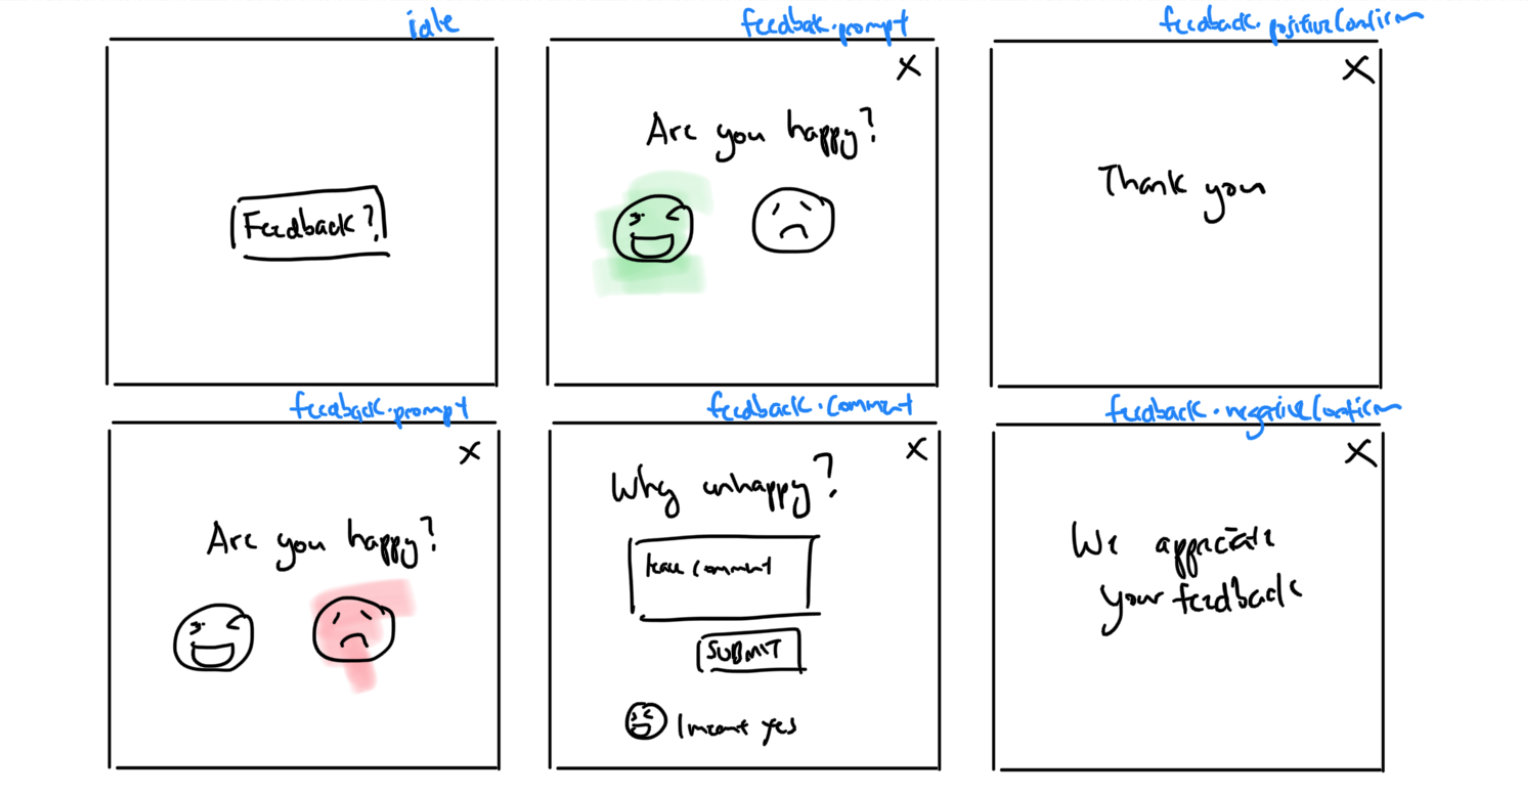 idle
Feedback?
feedbak.prompt
X
Are you happy?
feedback.positiveConfirm
X
Thank you
feedback.prompt
X
Are you happy?
feedback.comment
X
Why unhappy?
leave comment
SUBMIT
I meant yes
feedback.negativeConfirm
X
We appreciate
your feedback